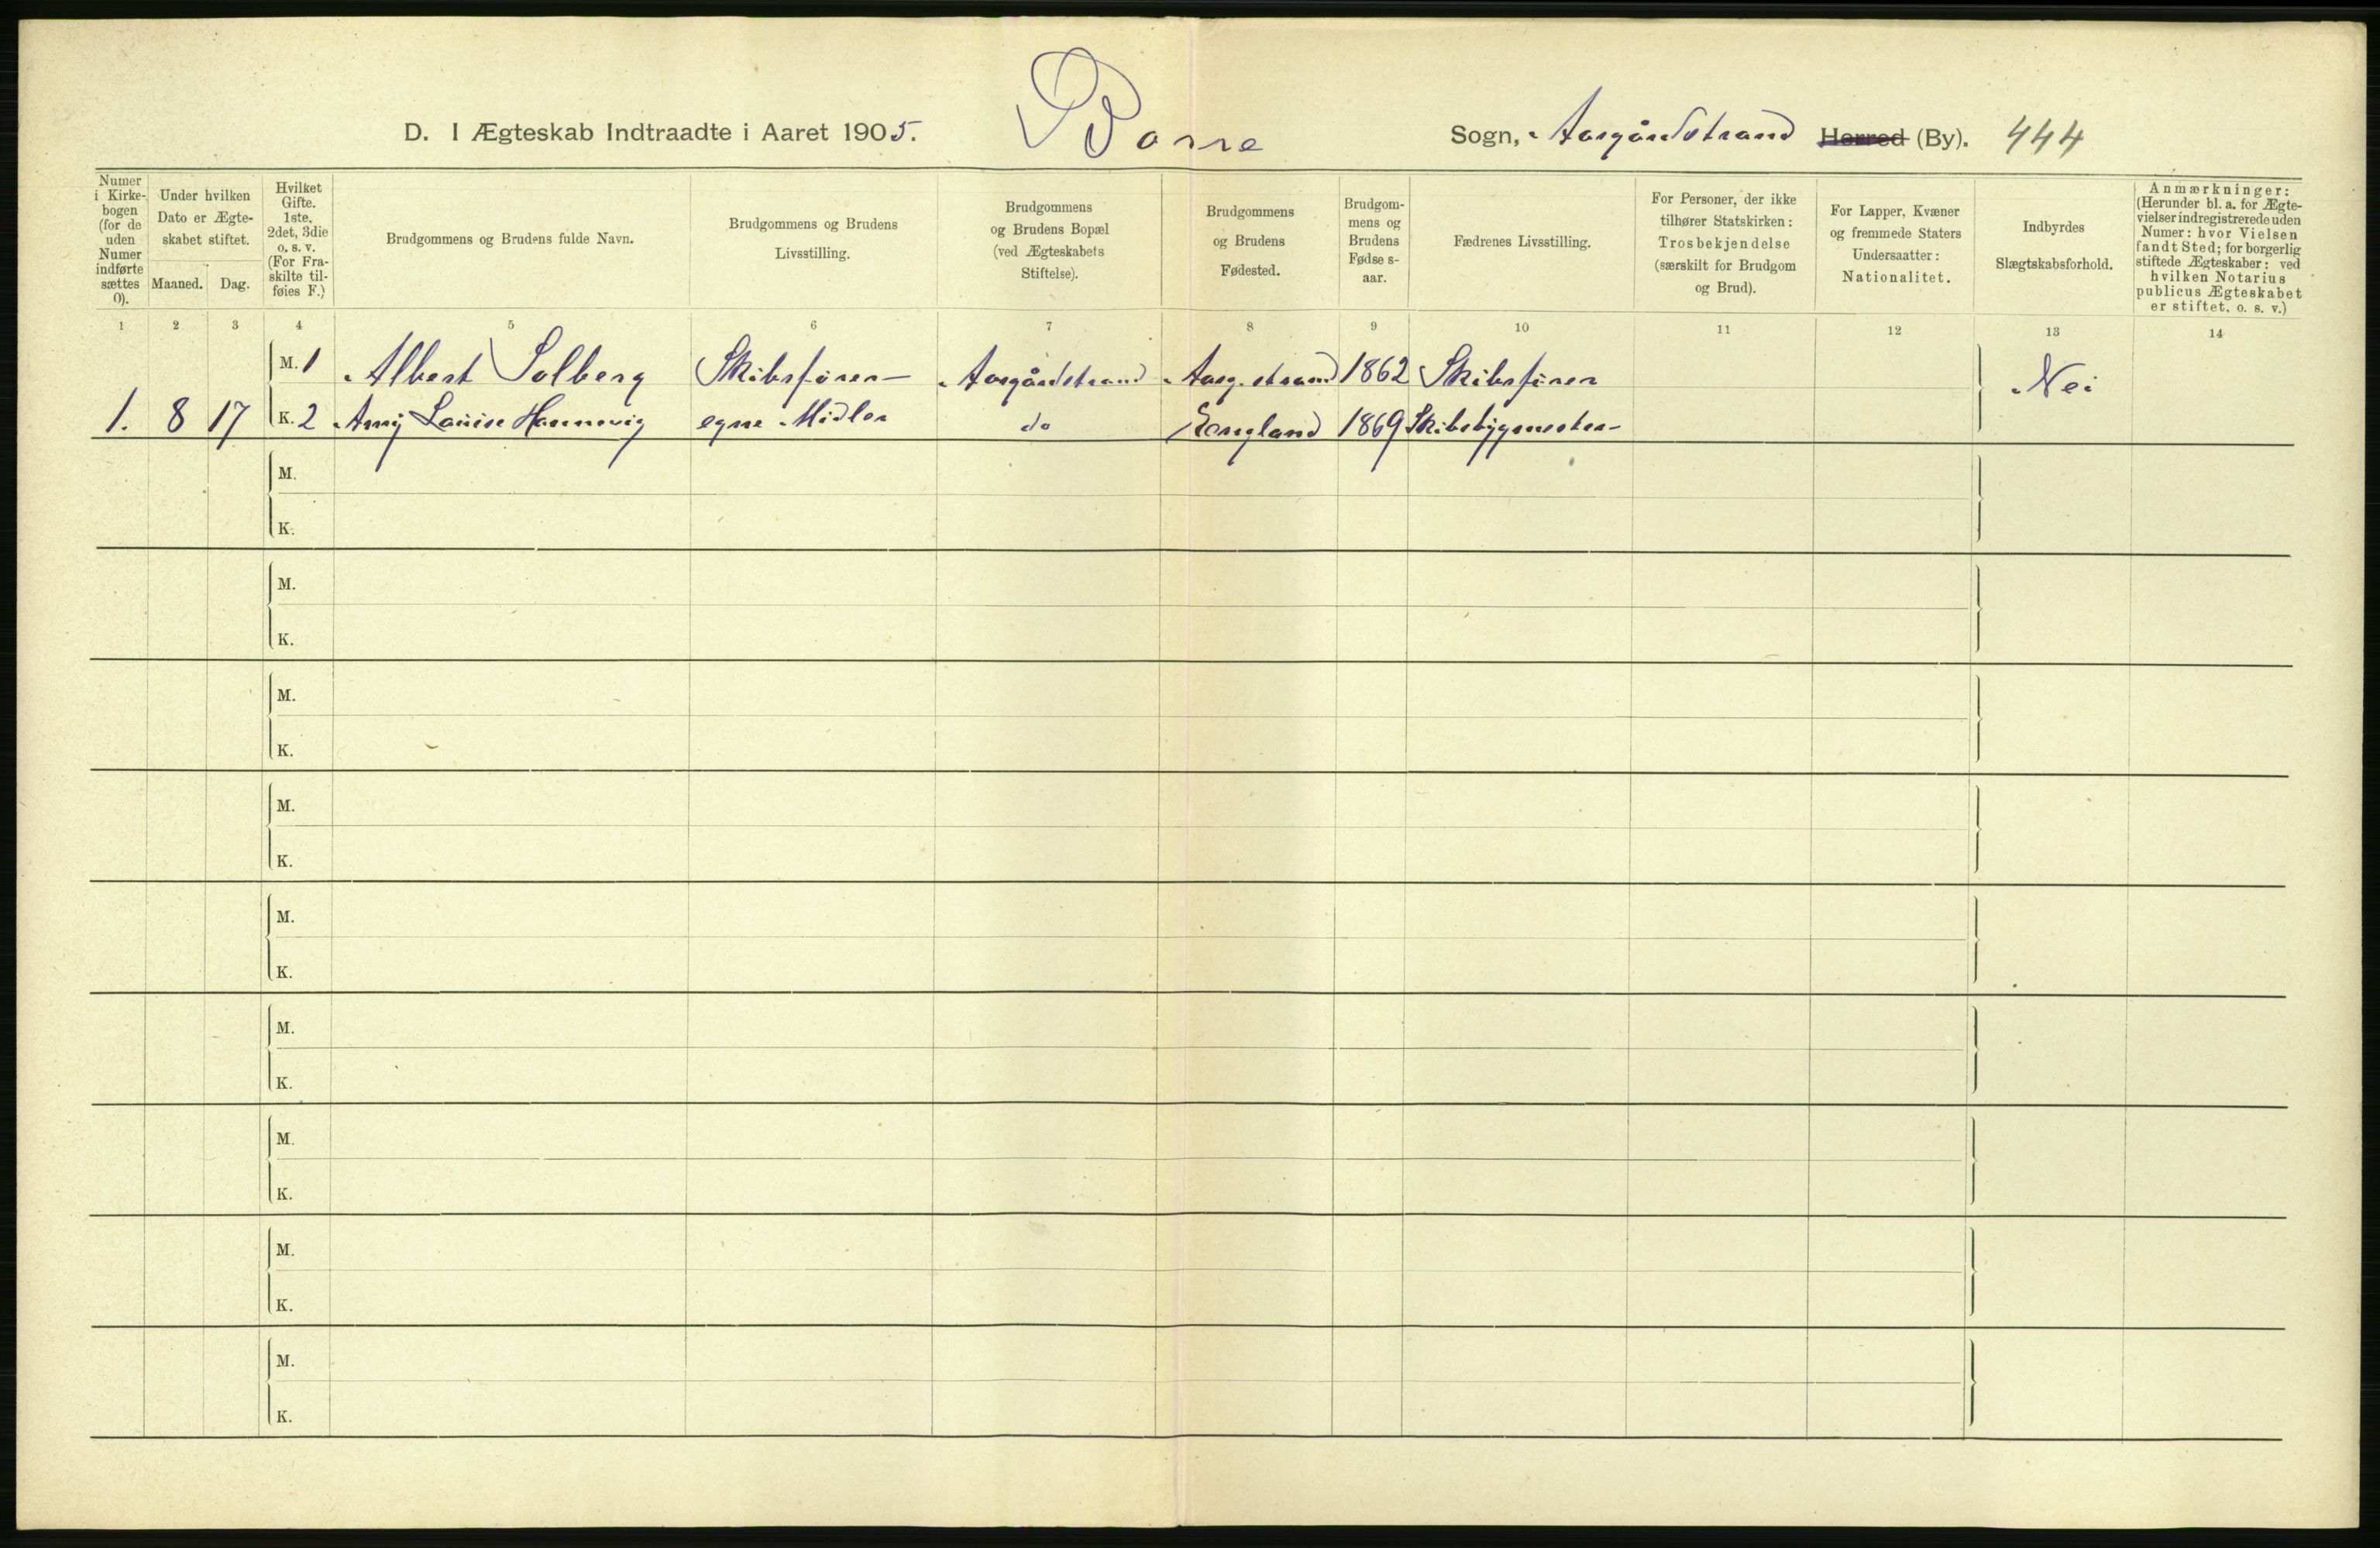 D. I Ægteskab Indtraadte i Aaret 1905. Borre Sogn, Aasgårdstrand Herred (By). 444
Numer i Kirkebogen (for de uden Numer indførte sættes 0).
Under hvilken Dato er Ægteskabet stiftet.
Maaned. Dag.
Hvilket Gifte. 1ste, 2det, 3die o. s. v. (For Fraskilte tilføies F.)
Brudgommens og Brudens fulde Navn.
Brudgommens og Brudens Livsstilling.
Brudgommens og Brudens Bopæl (ved Ægteskabets Stiftelse).
Brudgommens og Brudens Fødested.
Brudgommens og Brudens Fødses-aar.
Fædrenes Livsstilling.
For Personer, der ikke tilhører Statskirken: Trosbekjendelse (særskilt for Brudgom og Brud).
For Lapper, Kvæner og fremmede Staters Undersaatter: Nationalitet.
Indbyrdes Slægtskabsforhold.
Anmærkninger: (Herunder bl. a. for Ægtevielser indregistrerede uden Numer: hvor Vielsen fandt Sted; for borgerlig stiftede Ægteskaber: ved hvilken Notarius publicus Ægteskabet er stiftet, o. s. v.)
1 2 3 4 5 6 7 8 9 10 11 12 13 14
M. 1 Albert Solberg Skibsfører Aasgårdstrand Aasg.strand 1862 Skibsfører Nei
1. 8 17 K. 2 Amy Louise Hannevig egne Midler do England 1869 Skibsbygmester
M.
K.
M.
K.
M.
K.
M.
K.
M.
K.
M.
K.
M.
K.
M.
K.
M.
K.